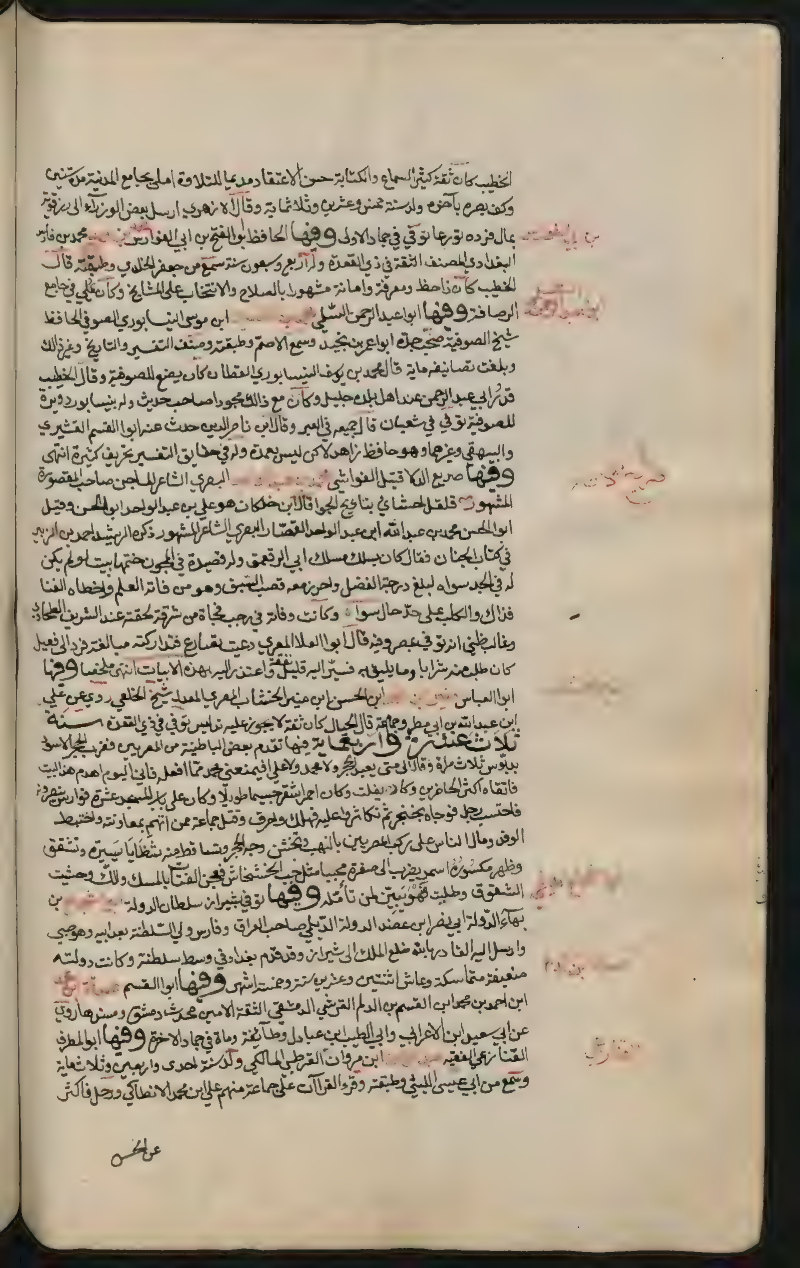 الخطيب كان ثقة كثير السماع والكتابة حسن الاعتقاد مديما للتلاوة املى بجامع المدينة مدة سنين
وكف بصره بآخره ولد سنة خمس وعشرين وثلاثماية وقال الازهري ارسل بعض الوزراء الى رزقويه
بمال فرده تورعا توفي في جماد الاولى وفيها الحافظ ابو الفتح بن ابي الفوارس محمد بن فارس
البغدادي المصنف الثقة في ذي القعدة وله اربع وسبعون سنة سمع من جعفر الخلدي وطبقته قال
الخطيب كان ذا حفظ ومعرفة وامانة مشهورا بالصلاح والانتخاب على المشايخ وكان يملي في جامع
الرصافة وفيها ابو عبد الرحمن السلمي ابن موسى النيسابوري الصوفي الحافظ
شيخ الصوفية صحب جده ابو عمر بن نجيد وسمع الاصم وطبقته وصنف التفسير والتاريخ وغير ذلك
وبلغت تصانيفه ماية قال محمد بن يوسف النيسابوري القطان كان يضع للصوفية وقال الخطيب
قدر ابي عبد الرحمن عند اهل بلده جليل وكان مع ذلك مجودا صاحب حديث وله بنيسابور دويرة
للصوفية توفي في شعبان قال جميعه في العبر وقال ابن ناصر الدين حدث عنه ابو القسم القشيري
والبيهقي وغيرهما وهو حافظ زاهد لاكن ليس بعمدة وله في حقايق التفسير تخريف كثيرة انتهى
وفيها صريع الدلا قتيل الغواشي البصري الشاعر الماجن صاحب المقصورة
المشهورة قلقل احشاي بتاريخ الجوا قال ابن خلكان هو علي بن عبد الواحد ابو الحسن وقيل
ابو الحسن محمد بن عبد الله ابن عبد الواحد القصار البصري الشاعر المشهور ذكره الرشيد احمد بن الزبير
في كتاب الجنان فقال كان يسلك مسلك ابي الرقعمق وله قصيدة في المجون ختمها ببيت لو لم يكن
له في الجد سواه لبلغ درجة الفضل واحرز معه قصب السبق وهو من فاته العلم واخطاه الغنا
فذاك والكلب على حد حال سوا وكانت وفاته في رجب فجاة من شرقة لحقته عند الشريف البطحاوي
وغالب ظني انه توفي في مصر وفيه قال ابو العلا المعري دعيت بصارع فتداركته مبالغة فرد الى فعيل
كان طلب منه شرابا وما يليق به فسير اليه قليل نفقة واعتذر اليه بهذه الابيات انتهى ملخصا وفيها
ابو العباس ابن الحسن ابن منير الخشاب المصري المعدل شيخ الخلعي روى عن علي
ابن عبد الله بن ابي مطر وجماعة قال الحبال كان ثقة لا يجوز عليه تدليس توفي في ذي القعدة سنة
ثلاث عشرة واربعماية فيها تقدم بعض الباطنية من المصريين فضرب الحجر الاسود
بدبوس ثلاث مرة وقال الى متى يعبد الحجر ولا محمد ولا علي افيمنعني محمد مما افعله فاني اليوم اهدم هذا البيت
فاتقاه اكثر الحاضرين وكاد يفلت وكان احمر اشقر جسيما طويلا وكان على باب المسجد عشرة فوارس ينصرونه
فاحتسب رجل فوجاه بخنجر ثم تكاثروا عليه فهلك واحرق وقتل جماعة ممن اتهم بمعاونته واختبط
الوفد ومال الناس على ركب المصريين بالنهب وتخشن وجه الحجر وتساقط منه شظايا يسيرة وتشقق
وظهر مكسوره اسمر يضرب الى صفرة محببا مثل حب الخشخاش فعجن الفتات بالمسك واللك وحشيت
الشقوق وطليت فهو يبين لمن تامله وفيها توفي بشيراز سلطان الدولة بن
بهاء الدولة ابي نصر ابن عضد الدولة الديلمي صاحب العراق وفارس ولي السلطنة بعد ابيه وهو صبي
وارسل اليه القادر بالله خلع الملك الى شيراز وقد قدم بغداد في وسط سلطنته وكانت دولته
ضعيفة متماسكة وعاش اثنتين وعشرين سنة وخمسة اشهر وفيها ابو القسم
ابن احمد بن محمد ابن القسم بن الدلم القرشي الدمشقي الثقة الامين محدث دمشق ومسندها روى
عن ابي سعيد ابن الاعرابي وابي الطيب ابن عبادل وطايفة ومات في جماد الاخرة وفيها ابو المطرف
القنازعي الفقيه ابن مروان القرطبي المالكي ولد سنة احدى واربعين وثلاثماية
وسمع من ابي عيسى الليثي وطبقته وقرء القرآن على جماعة منهم علي ابن محمد الانطاكي ورحل فاكثر
عن الحسن